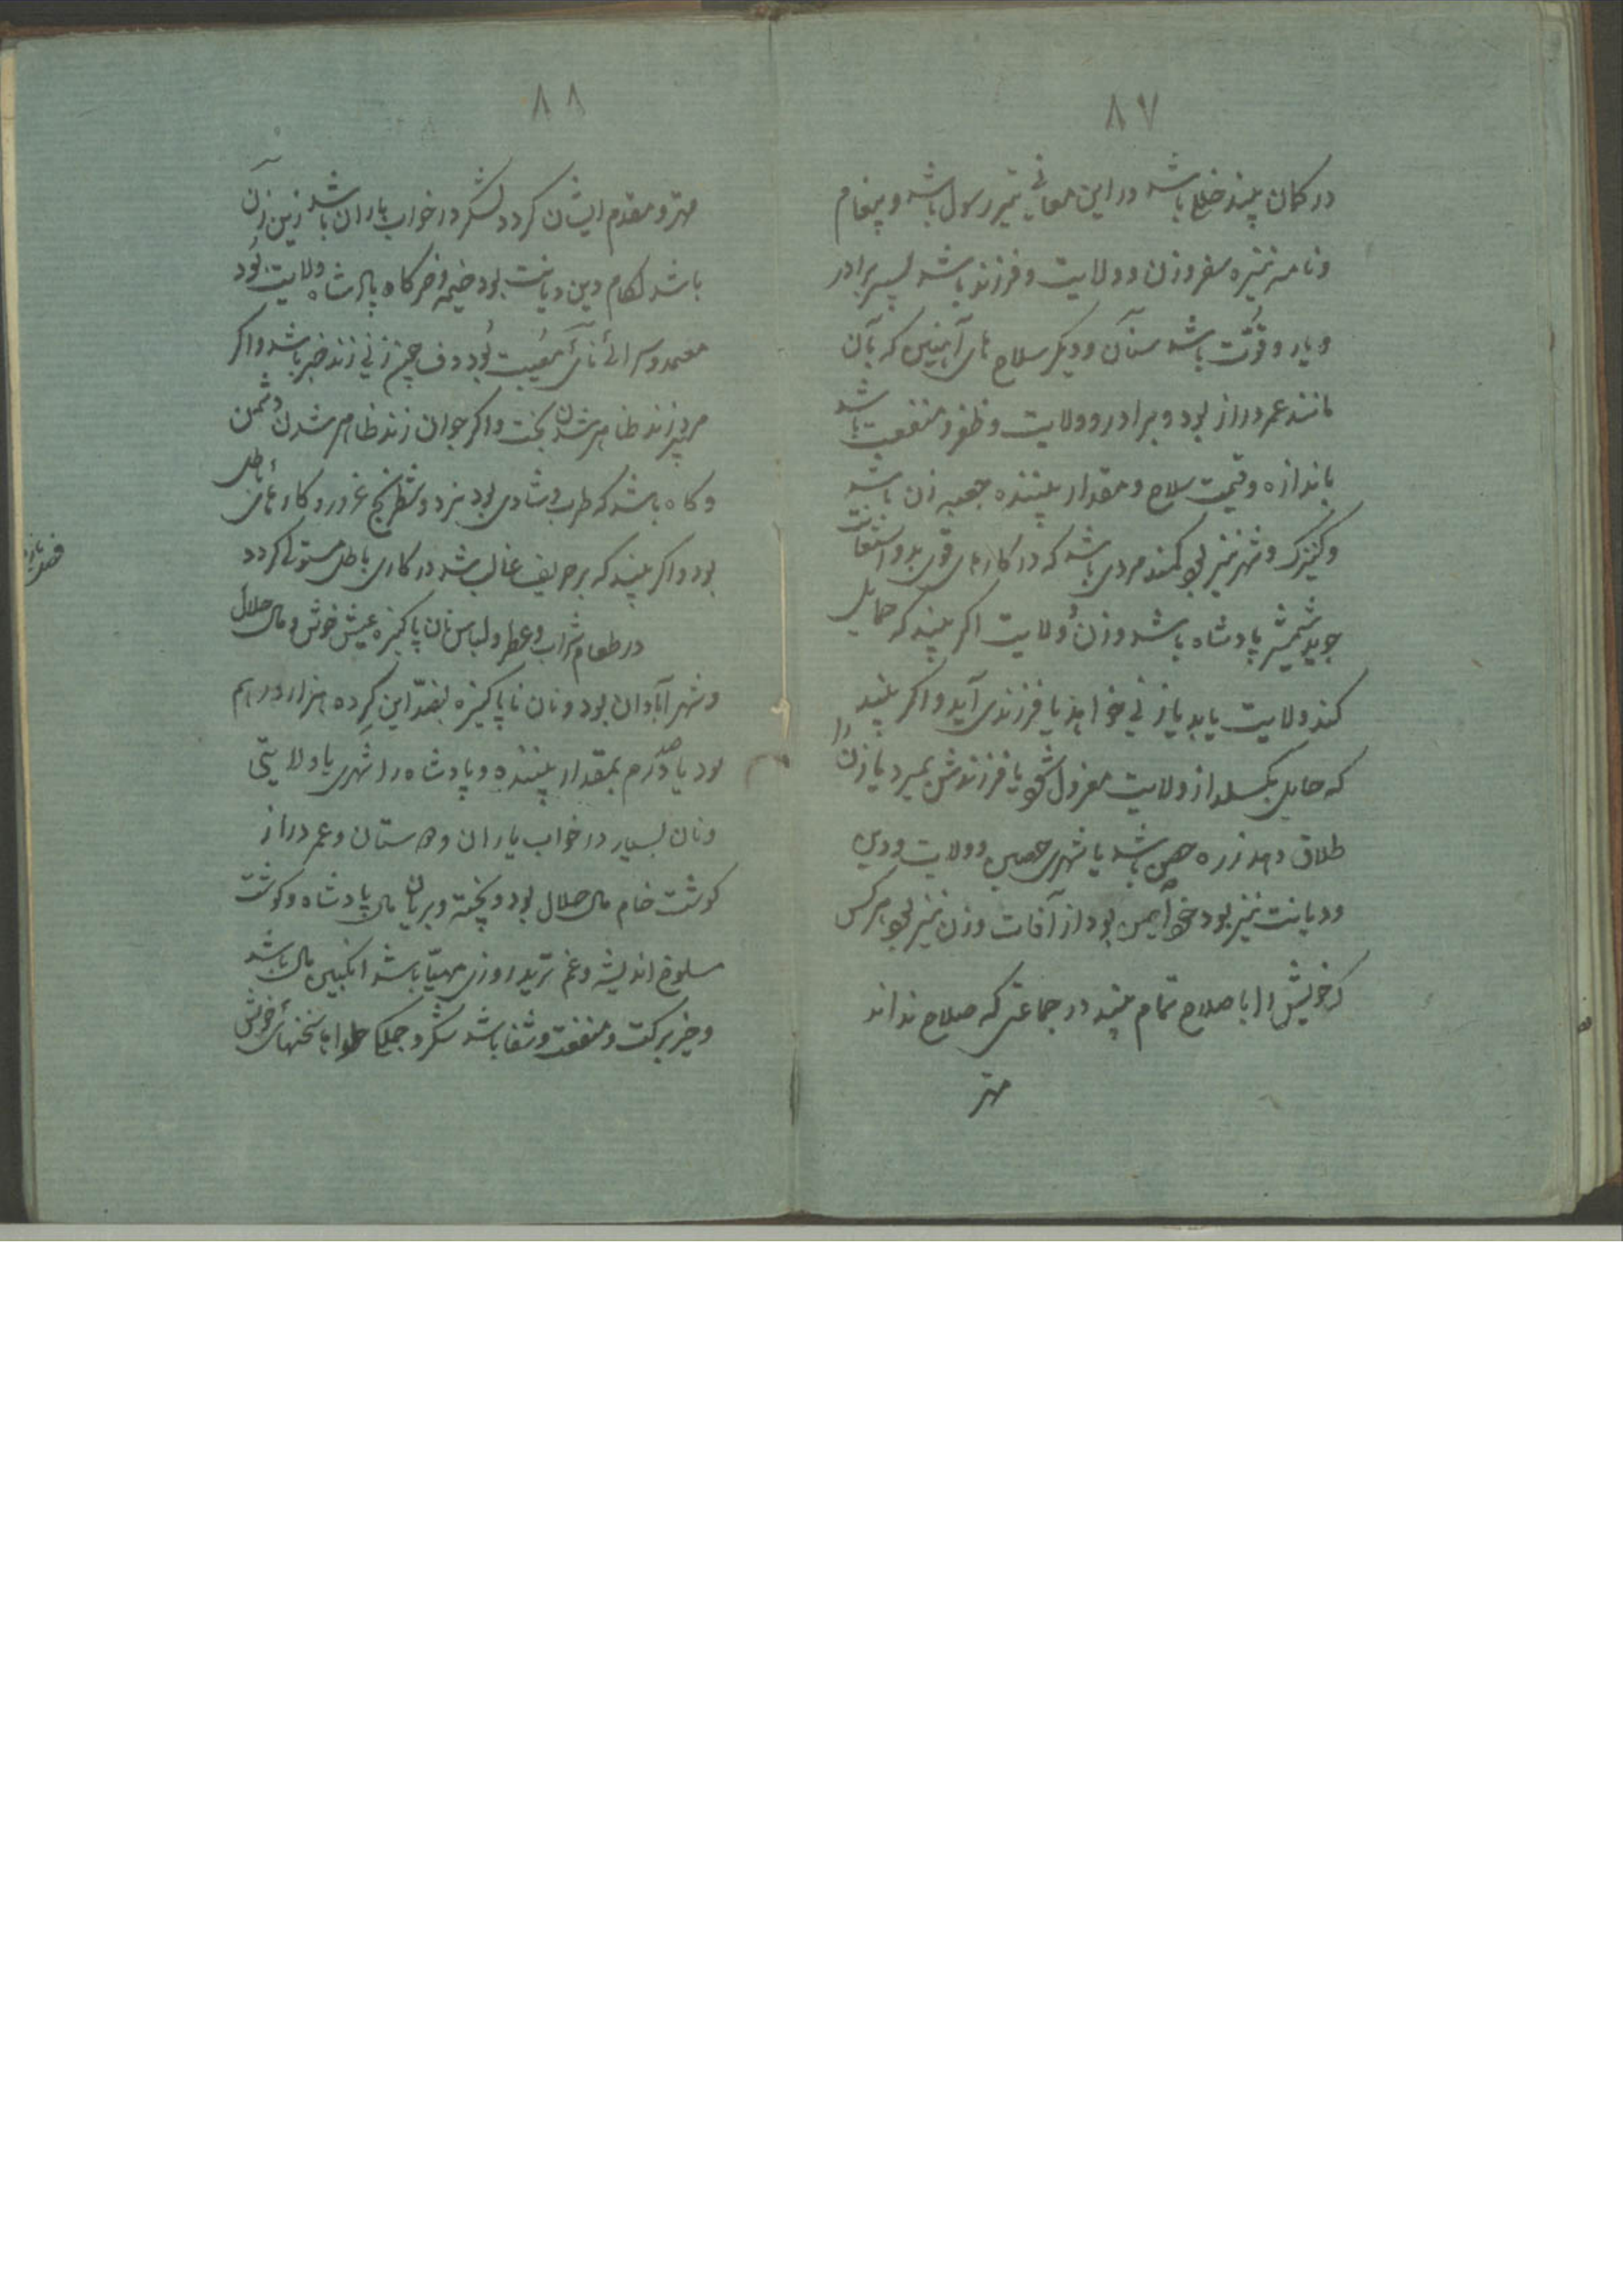 ۸۷
در کمان بیند خلل باشد در این معانی تیر رسول باشد و پیغام
و نامه نیزه سفر و زن و ولایت و فرزند باشد پسر برادر
و یار و قوّت باشد سنان و دیکر سلاح های آهنین که بآن
مانند عمر دراز بود و برادر و ولایت و ظفر و منفعت باشد
باندازه و قیمت سلاح و مقدار بیننده جعبه زن باشد
و کنیزک و شهر نیز بود کمند مردی باشد که در کارهای قوی بدو استعانت
جوید شمشیر پادشاه باشد و زن و ولایت اکر بیند که حمایل
کند ولایت یابد یا زنی خواهد یا فرزندی آید و اکر بیند
که حمایل بکسلد از ولایت معزول شود یا فرزندش بمیرد یا زن را
طلاق دهد زره حصن باشد یا شهری حصین و ولایت و دین
و دیانت نیز بود خود ایمن بود از آفات و زن نیز بود هر کس
که خویش را با صلاح تمام بیند در جماعتی که صلاح ندارند
مهتر
۸۸
مهتر و مقدم ایشان کردد لشکر در خواب باران باشد زین زن
باشد لکام دین و دیانت بود خیمه و خرکاه پادشاه ولایت بود
و سرائ نای مصیبت بود دف چیز زنی زند خبر باشد و اکر
مرد پیر زند ظاهر شدن بخت و اکر جوان زند ظاهر شدن دشمن
و کاه باشد که طرب و شادی بود نرد و شطرنج غرور و کارهای باطل
بود و اکر بیند که بر حریف غالب شد در کاری باطل مستولی کردد
در طعام و شراب و عطر و لباس نان پاکیزه عیش خوش و مال حلال
و شهر آبادان بود و نان ناپاکیزه بضدّ این کرده هزار درهم
بود یا صد درم بمقدار بیننده و پادشاه را شهری یا ولایتی
و نان بسیار در خواب یاران و دوستان و عمر دراز
کوشت خام مال حلال بود و پخته و بریان مال پادشاه و کوشت
مسلوخ اندیشه و غم ترید روزی مهیّا باشد انکبین مال باشد
و خیر برکت و منفعت و شفا باشد شکر و جملکی حلوا ها سخنهای خوش
فصل